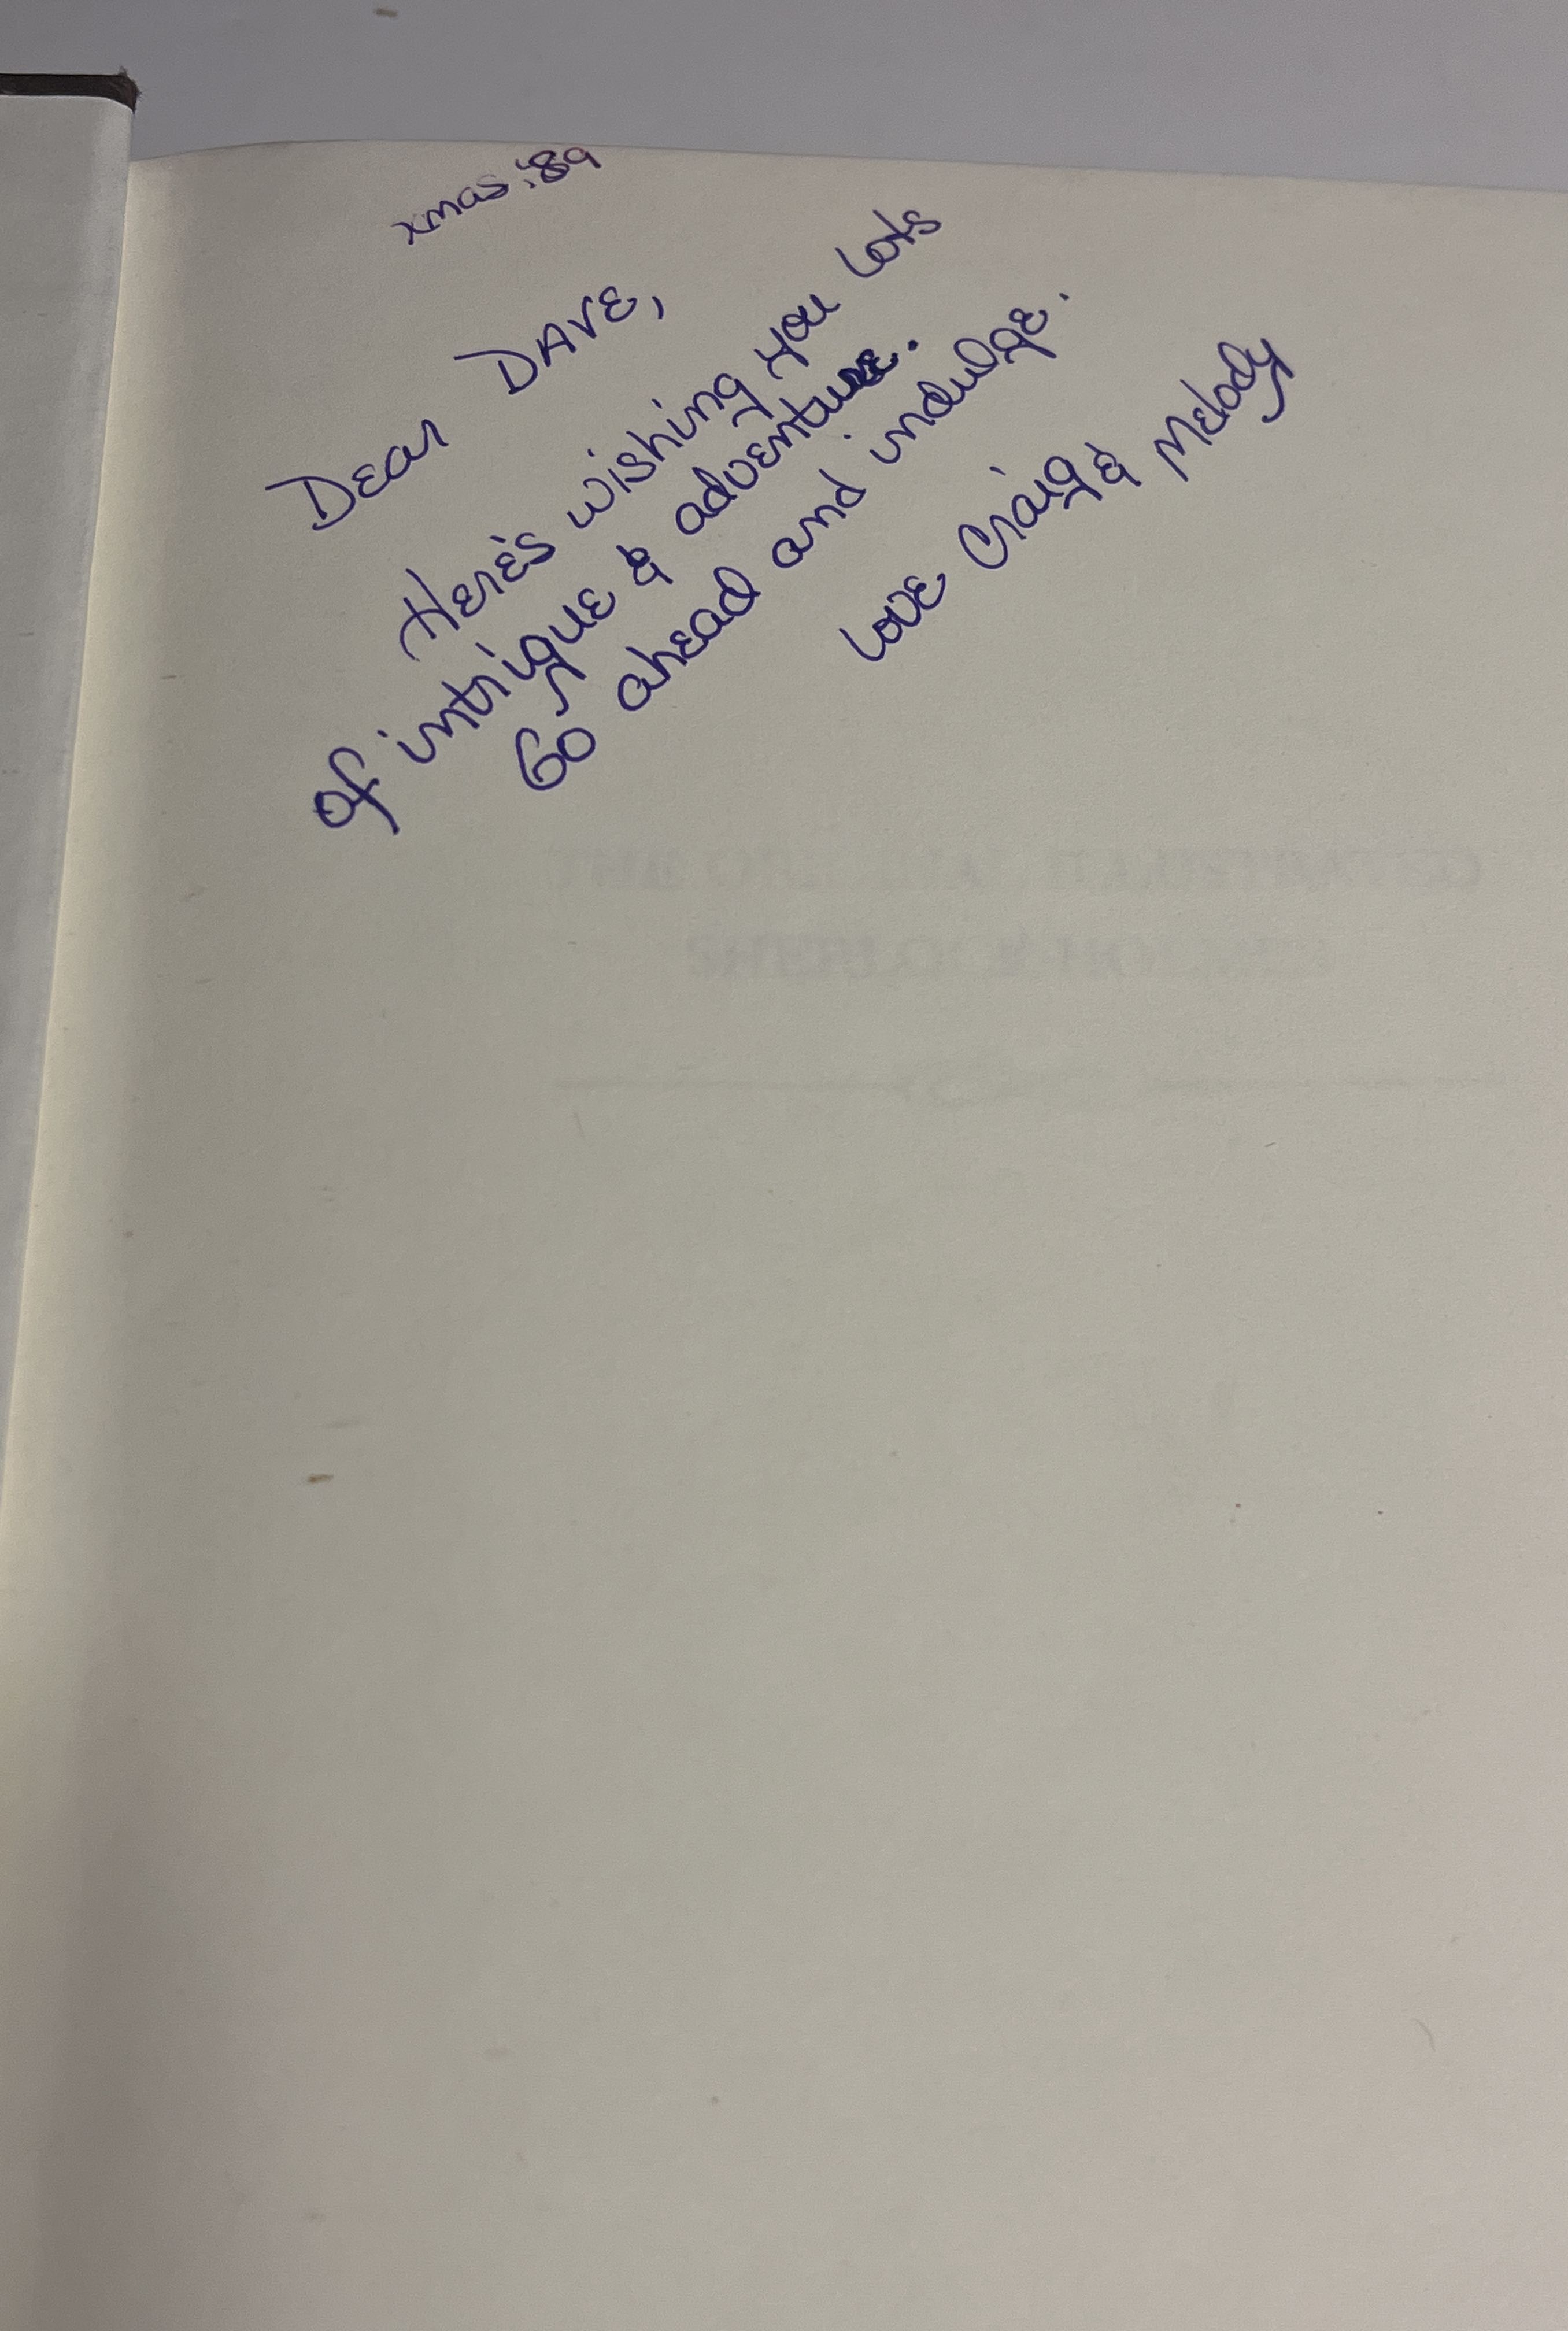 xmas '89
Dear DAVE,
Here's wishing you lots
of intrigue & adventure.
Go ahead and indulge.
Love Craig & Melody